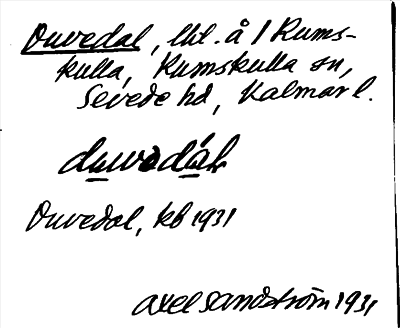 Duvedal, lht. å 1 Rums-
kulla, Rumskulla sn,
Sevede hd, Kalmar l.
duvədál
Duvedal, kb 1931
Axel Sandström 1931